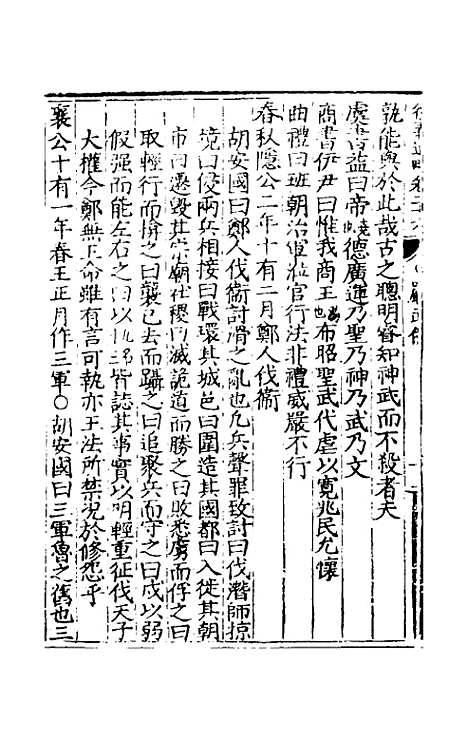 孰能與於此哉古之聰明睿知神武而不殺者夫
虞書益曰帝德廣運乃聖乃神乃武乃文
商書伊尹曰惟我商王布昭聖武代虐以寬兆民允懷
曲禮曰班朝治軍涖官行法非禮威嚴不行
春秋隱公二年十有二月鄭人伐衛
胡安國曰鄭人伐衛討滑之亂也凡兵聲罪致討曰伐潛師掠
境曰侵兩兵相接曰戰環其城邑曰圍造其國都曰入徙其朝
市曰遷毀其宗廟社稷曰滅詭道而勝之曰敗悉虜而俘之曰
取輕行而揜之曰襲已去而躡之曰追聚兵而守之曰戍以弱
假强而能左右之曰以皆誌其事實以明輕重征伐天子
大權今鄭無王命雖有言可執亦王法所禁況於修怨乎
襄公十有一年春王正月作三軍○胡安國曰三軍魯之舊也三